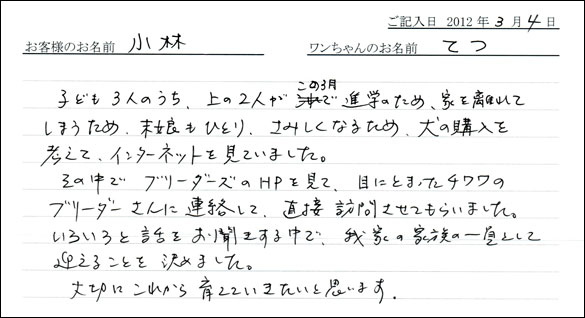 ご記入日 2012年3月4日
お客様のお名前 小林 ワンちゃんのお名前 てつ
この3月
子ども3人のうち、上の2人が 進学のため、家を離れて
しまうため、末娘もひとり、さみしくなるため、犬の購入を
考えて、インターネットを見ていました。
その中で ブリーダーズのHPを見て、目にとまったチワワの
ブリーダーさんに連絡して、直接訪問させてもらいました。
いろいろと話をお聞きする中で、我家の家族の一員として
迎えることを決めました。
大切にこれから育てていきたいと思います.